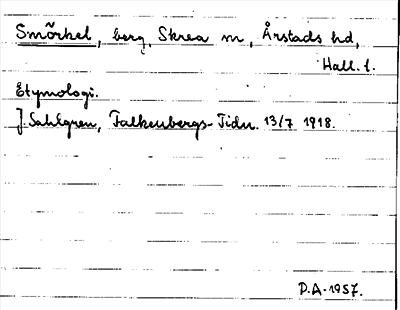 Smörkel, berg, Skrea sn, Årstads hd,
Hall. l.
Etymologi.
J. Sahlgren, Falkenbergs-Tidn. 13/7 1918.
D.A. 1957.